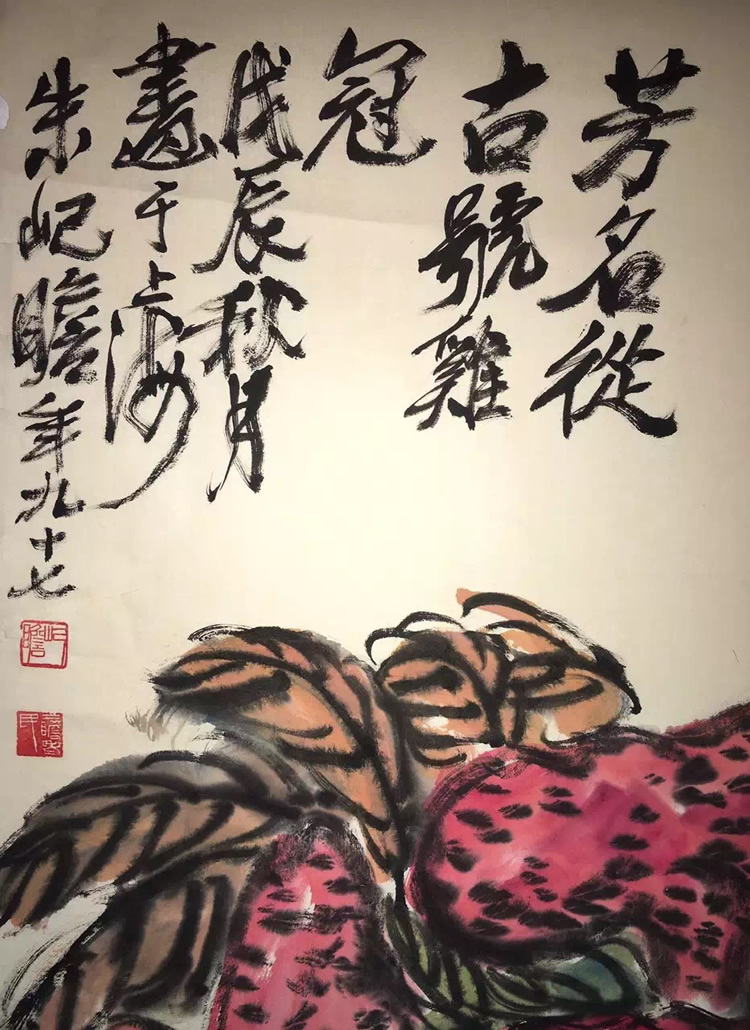 芳名從
古號雞
冠
戊辰秋月
畫于上海
朱屺瞻年九十七
屺瞻